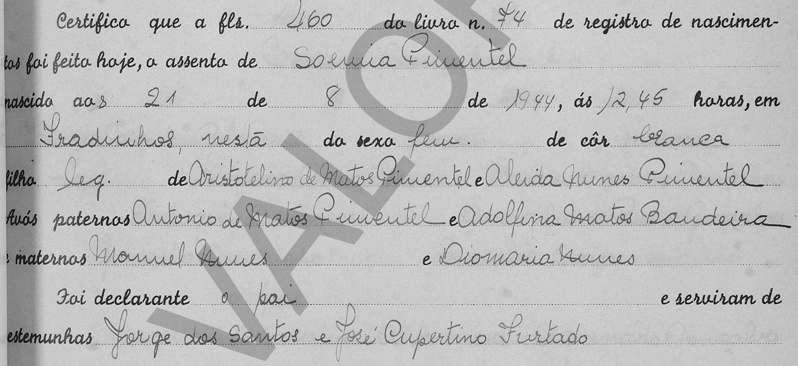 Certifico que a fls. 460 do livro n. 74 de registro de nascimen-
tos foi feito hoje, o assento de Soenia Pimentel
nascido aos 21 de 8 de 1944, ás 12,45 horas, em
Fradinhos, nesta do sexo fem. de côr branca
filho leg. de Aristotelino de Matos Pimentel e Aleida Nunes Pimentel
Avós paternos Antonio de Matos Pimentel e Adolfina Matos Bandeira
e maternos Manuel Nunes e Diomaria Nunes
Foi declarante o pai e serviram de
estemunhas Jorge dos Santos e José Cupertino Furtado
VALOR